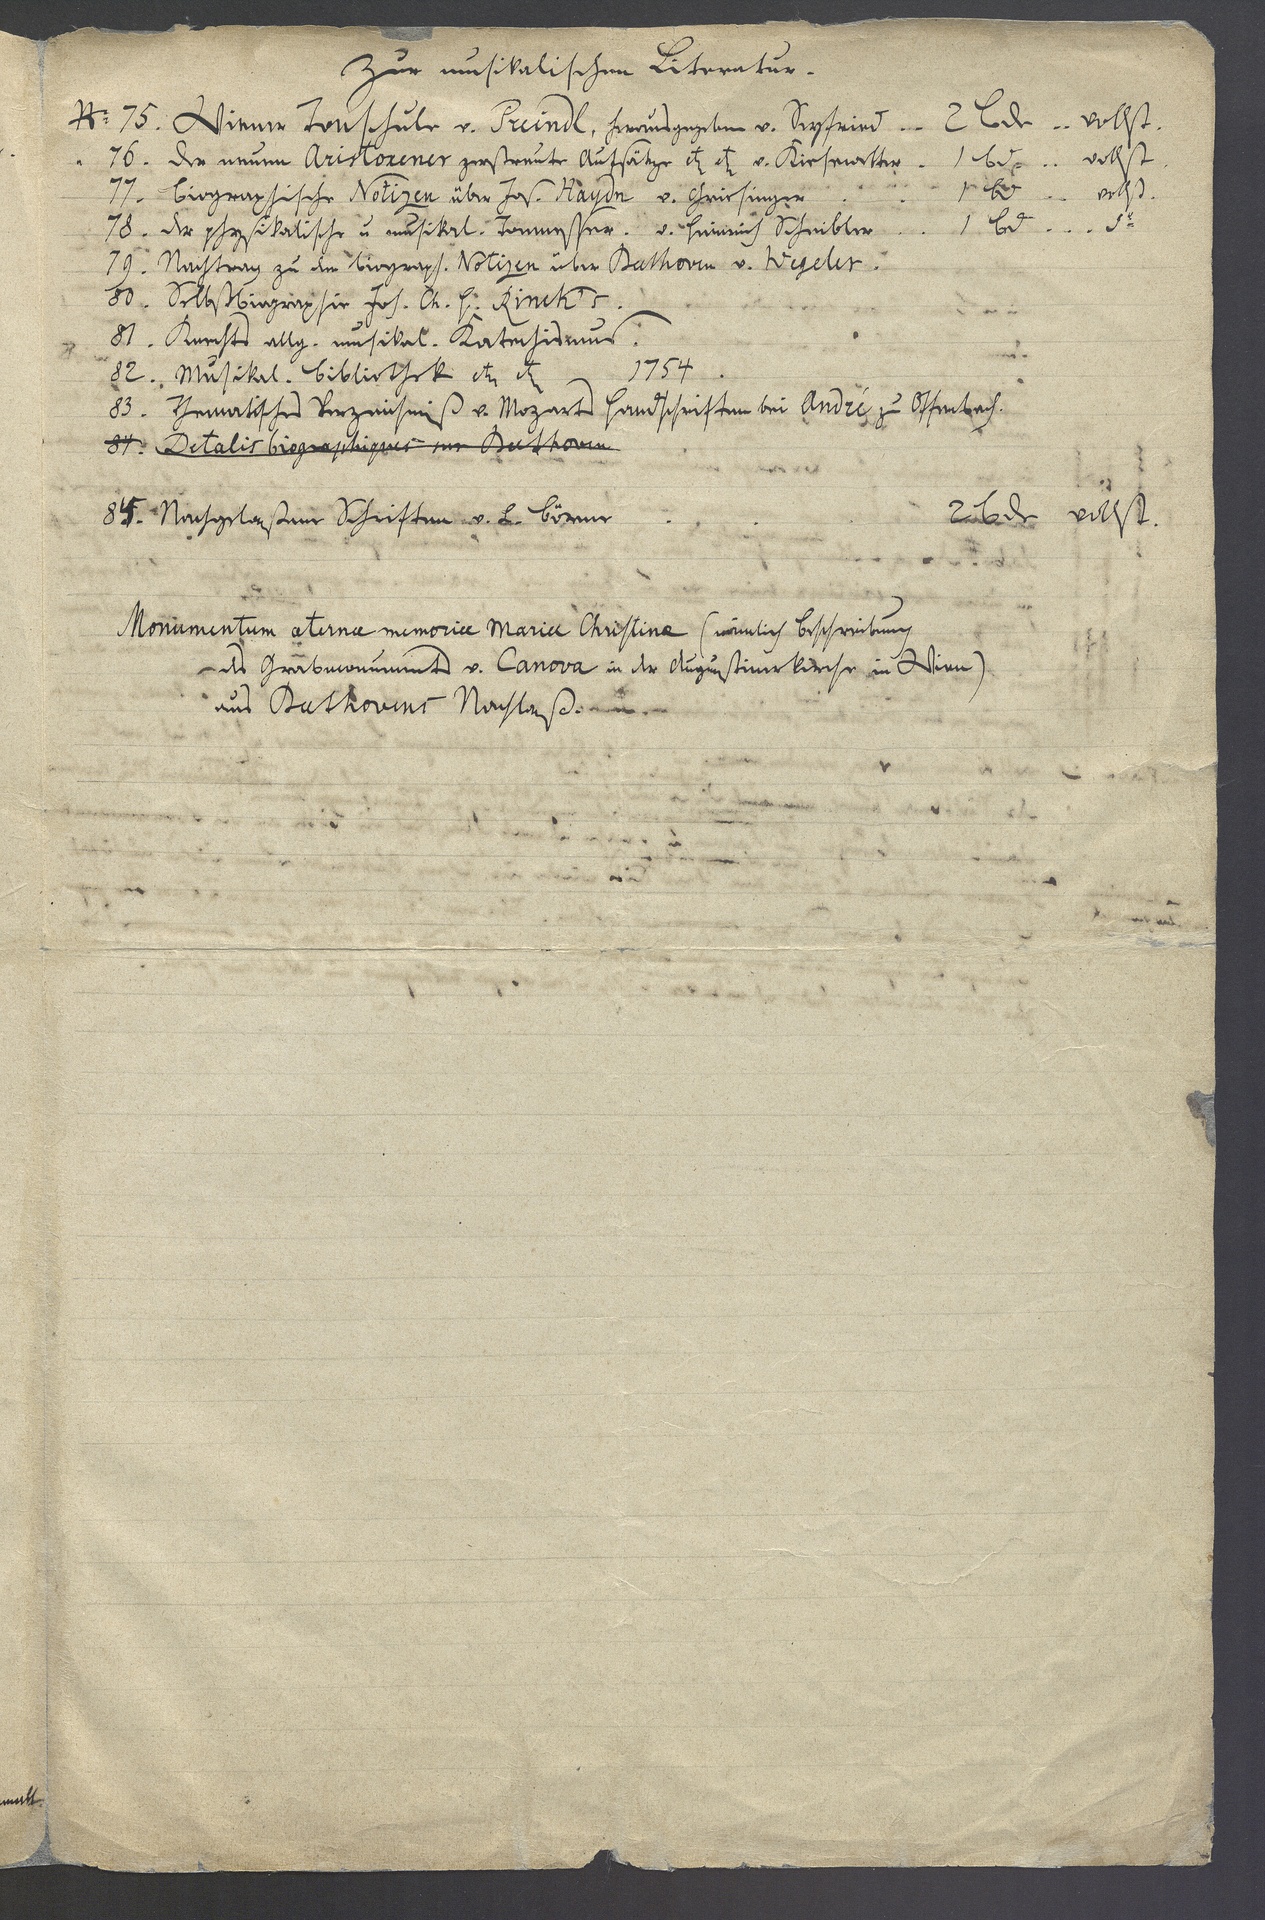 Zur musikalischen Literatur.
No 75. Wiener Tonschule v. Preindl, herausgegeben v. Seyfried .. 2 Bde .. vollst.
" 76. Der neuen Aristoxener zerstreute Aufsätze etc etc v. Kiesewetter . 1 Bd. .. vollst.
77. Biographische Notizen über Jos. Haydn v. Griesinger . . 1 Bd .. vollst.
78. der physikalische u musikal. Tonmesser. v. Heinrich Scheibler .. 1 Bd ... do
79. Nachtrag zu den biograph. Notizen über Beethoven v. Wegeler.
80. Selbstbiographie Joh. Ch. H. Rinck's.
81. Knechts allg. musikal. Katechismus.
82. Musikal. Bibliothek etc etc 1754.
83. Thematisches Verzeichniß v. Mozarts Handschriften bei André zu Offenbach.
84. Detalis biographiques sur Beethoven
84. Nachgelaßene Schriften v. L. Börne . . . 2 Bde vollst.
Monumentum æternæ memoriæ Mariæ Christinæ (nämlich Beschreibung
des Grabmonuments v. Canova in der Augustinerkirche in Wien)
aus Beethovens Nachlaß.